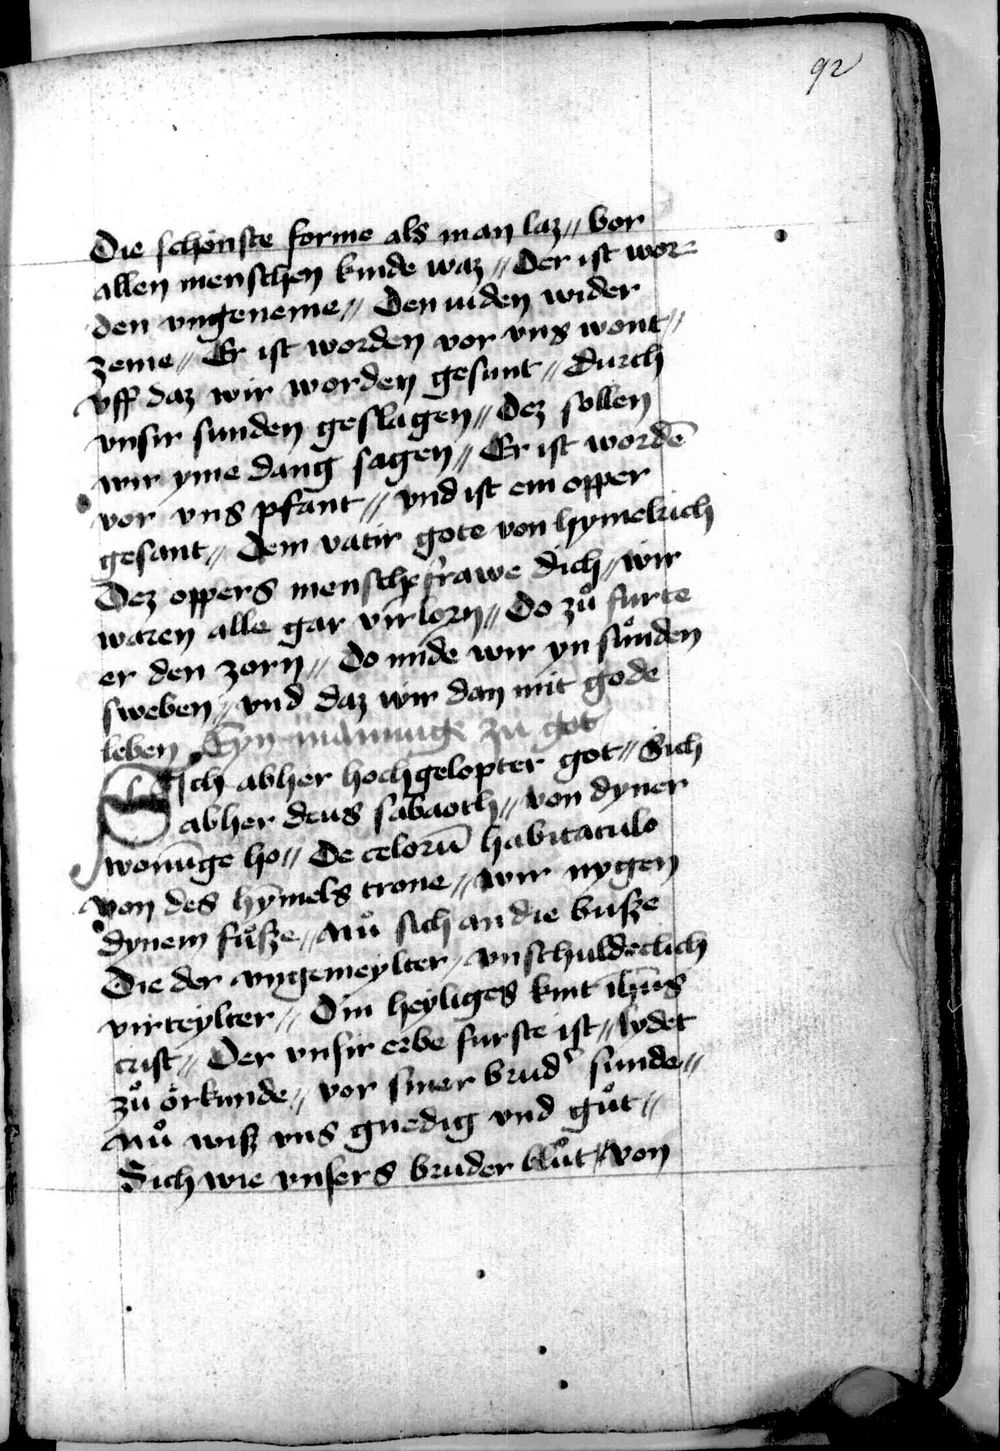 92
Die schönste forme als man laz // vor
allen menschen kinde waz // Der ist wor-
den vngeneme // Den iuden wider
zeme // Er ist worden vor vns wont //
vff daz wir worden gesunt // Durch
vnsir sunden geslagen // Dez sollen
wir yme dang sagen // Er ist wordē
vor vns pfant // vnd ist ein opper
gesant // Dem vatir gote von hymelrich
Dez oppers mensche frawe dich // wir
waren alle gar virlorn // Do zů furte
er den zorn // Do mide wir yn sůnden
sweben // vnd daz wir dan mit gode
leben Eyn manunge zu got
Sich abher hochgelopter got // Sich
abher deus sabaoth // von dyner
wonūge ho // De celorū habitaculo
von des hȳmels trone // wir nygen
dynem fůsze // Nů sich an die busze
Die der vngemeylter / vnschuldeclich
virteylter // Din heyliges kint ih̄us
crist // Der vnsir erbe furste ist // lydet
zů örkunde // vor siner brud' sunde //
Nů wisz vns gnedig vnd gůt //
Sich wie vnsers bruder blůt // von